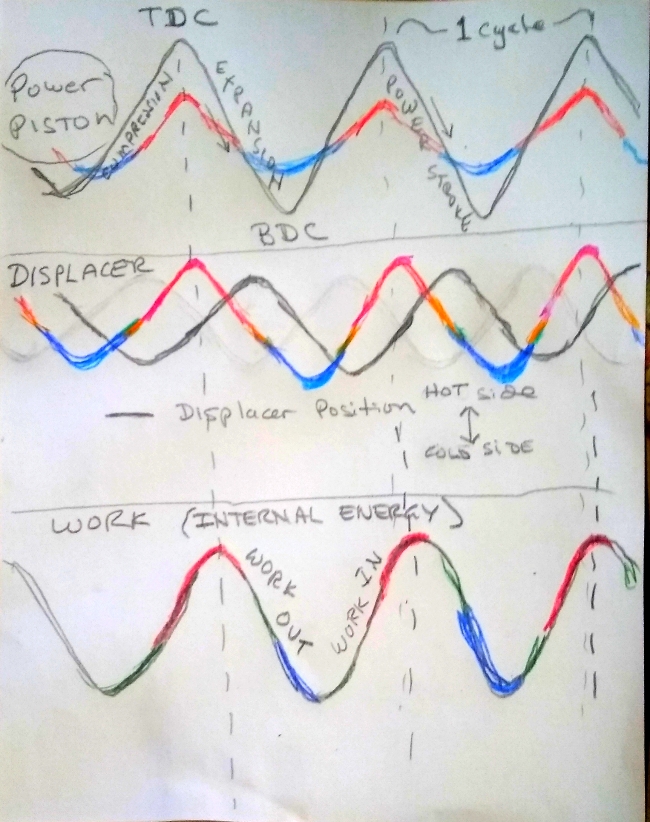 TDC
1 Cycle
Power
PISTON
COMPRESSION
EXPANSION
POWER
STROKE
BDC
DISPLACER
— Displacer Position
HOT SiDE
COLD SiDE
WORK (INTERNAL ENERGY)
WORK
OUT
WORK IN